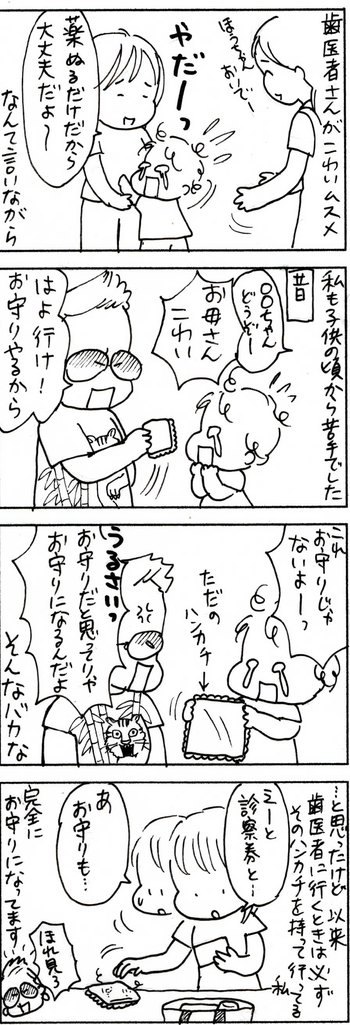 歯医者さんがこわいムスメ
ほうちゃん
おいでー
やだーっ
薬ぬるだけだから
大丈夫だよ〜
なんて言いながら
私も子供の頃から苦手でした
昔
〇〇ちゃん
どうぞー
お母さん
こわい
はよ行け!
お守りやるから
これ
お守りじゃ
ないよーっ
ただの
ハンカチ
うるさいっ
お守りだと思ってりゃ
お守りになるんだよ
そんなバカな
…と思ったけど 以来
歯医者に行くときは必ず
そのハンカチを持って行ってる
私
えーと
診察券と…
あ
お守りも…
完全に
お守りになってます…
ほれ見ろ